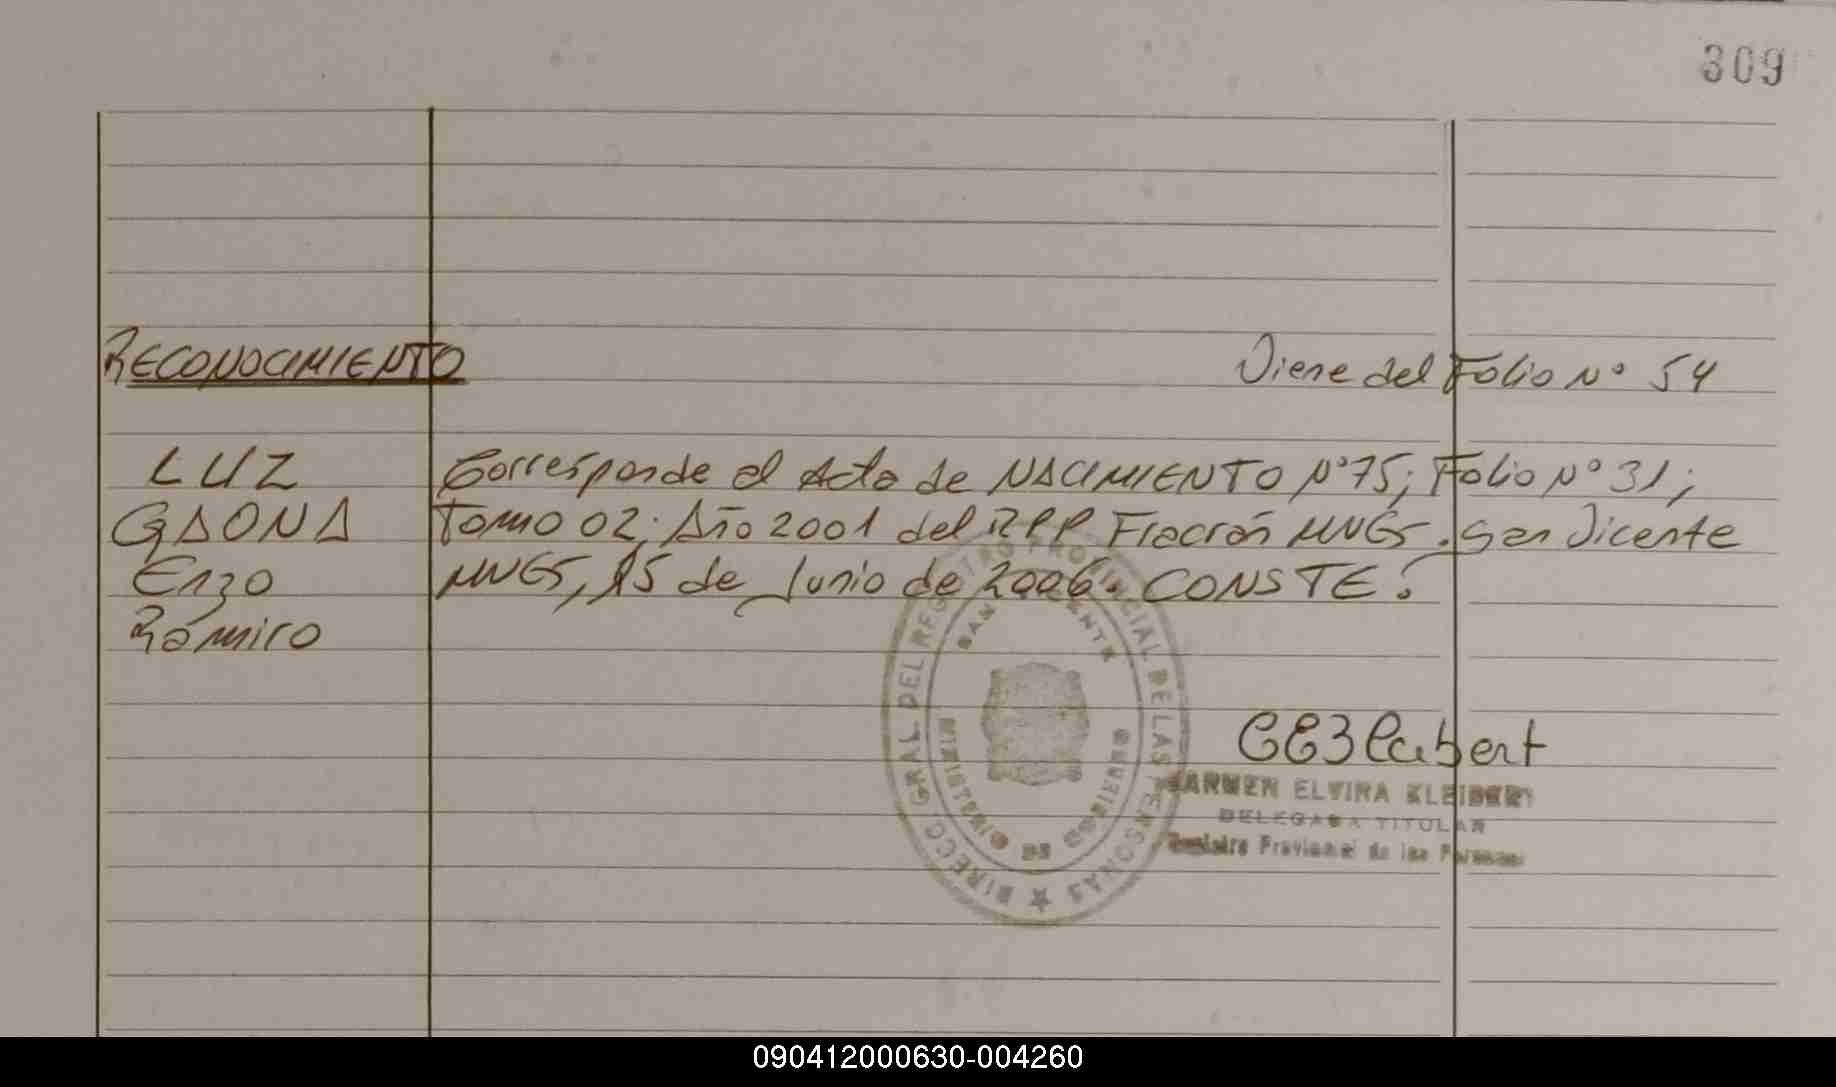 309
RECONOCIMIENTO
Viene del Folio Nº 54
LUZ
GAONA
Enzo
Ramiro
Corresponde al Acta de NACIMIENTO Nº 75; Folio Nº 31;
Tomo 02; Año 2001 del RPP Fracrán MNES. San Vicente
MNES, 15 de Junio de 2006. CONSTE.
DIRECC. GRAL. DEL REGISTRO PROVINCIAL DE LAS PERSONAS
SAN VICENTE
MINISTERIO DE GOBIERNO
CARMEN ELVIRA KLEIBERT
DELEGADA TITULAR
Registro Provincial de las Personas
090412000630-004260